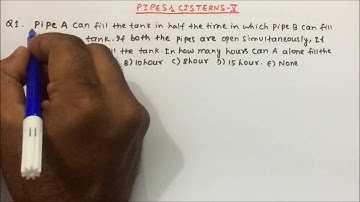 PIPES & CISTERNS-V
Q1. Pipe A can fill the tank in half the time in which Pipe B can fill
tank. If both the pipes are open simultaneously, It
ll the tank. In how many hours can A alone fill the
B) 10 hour C) 8 hour D) 15 hour. E) None